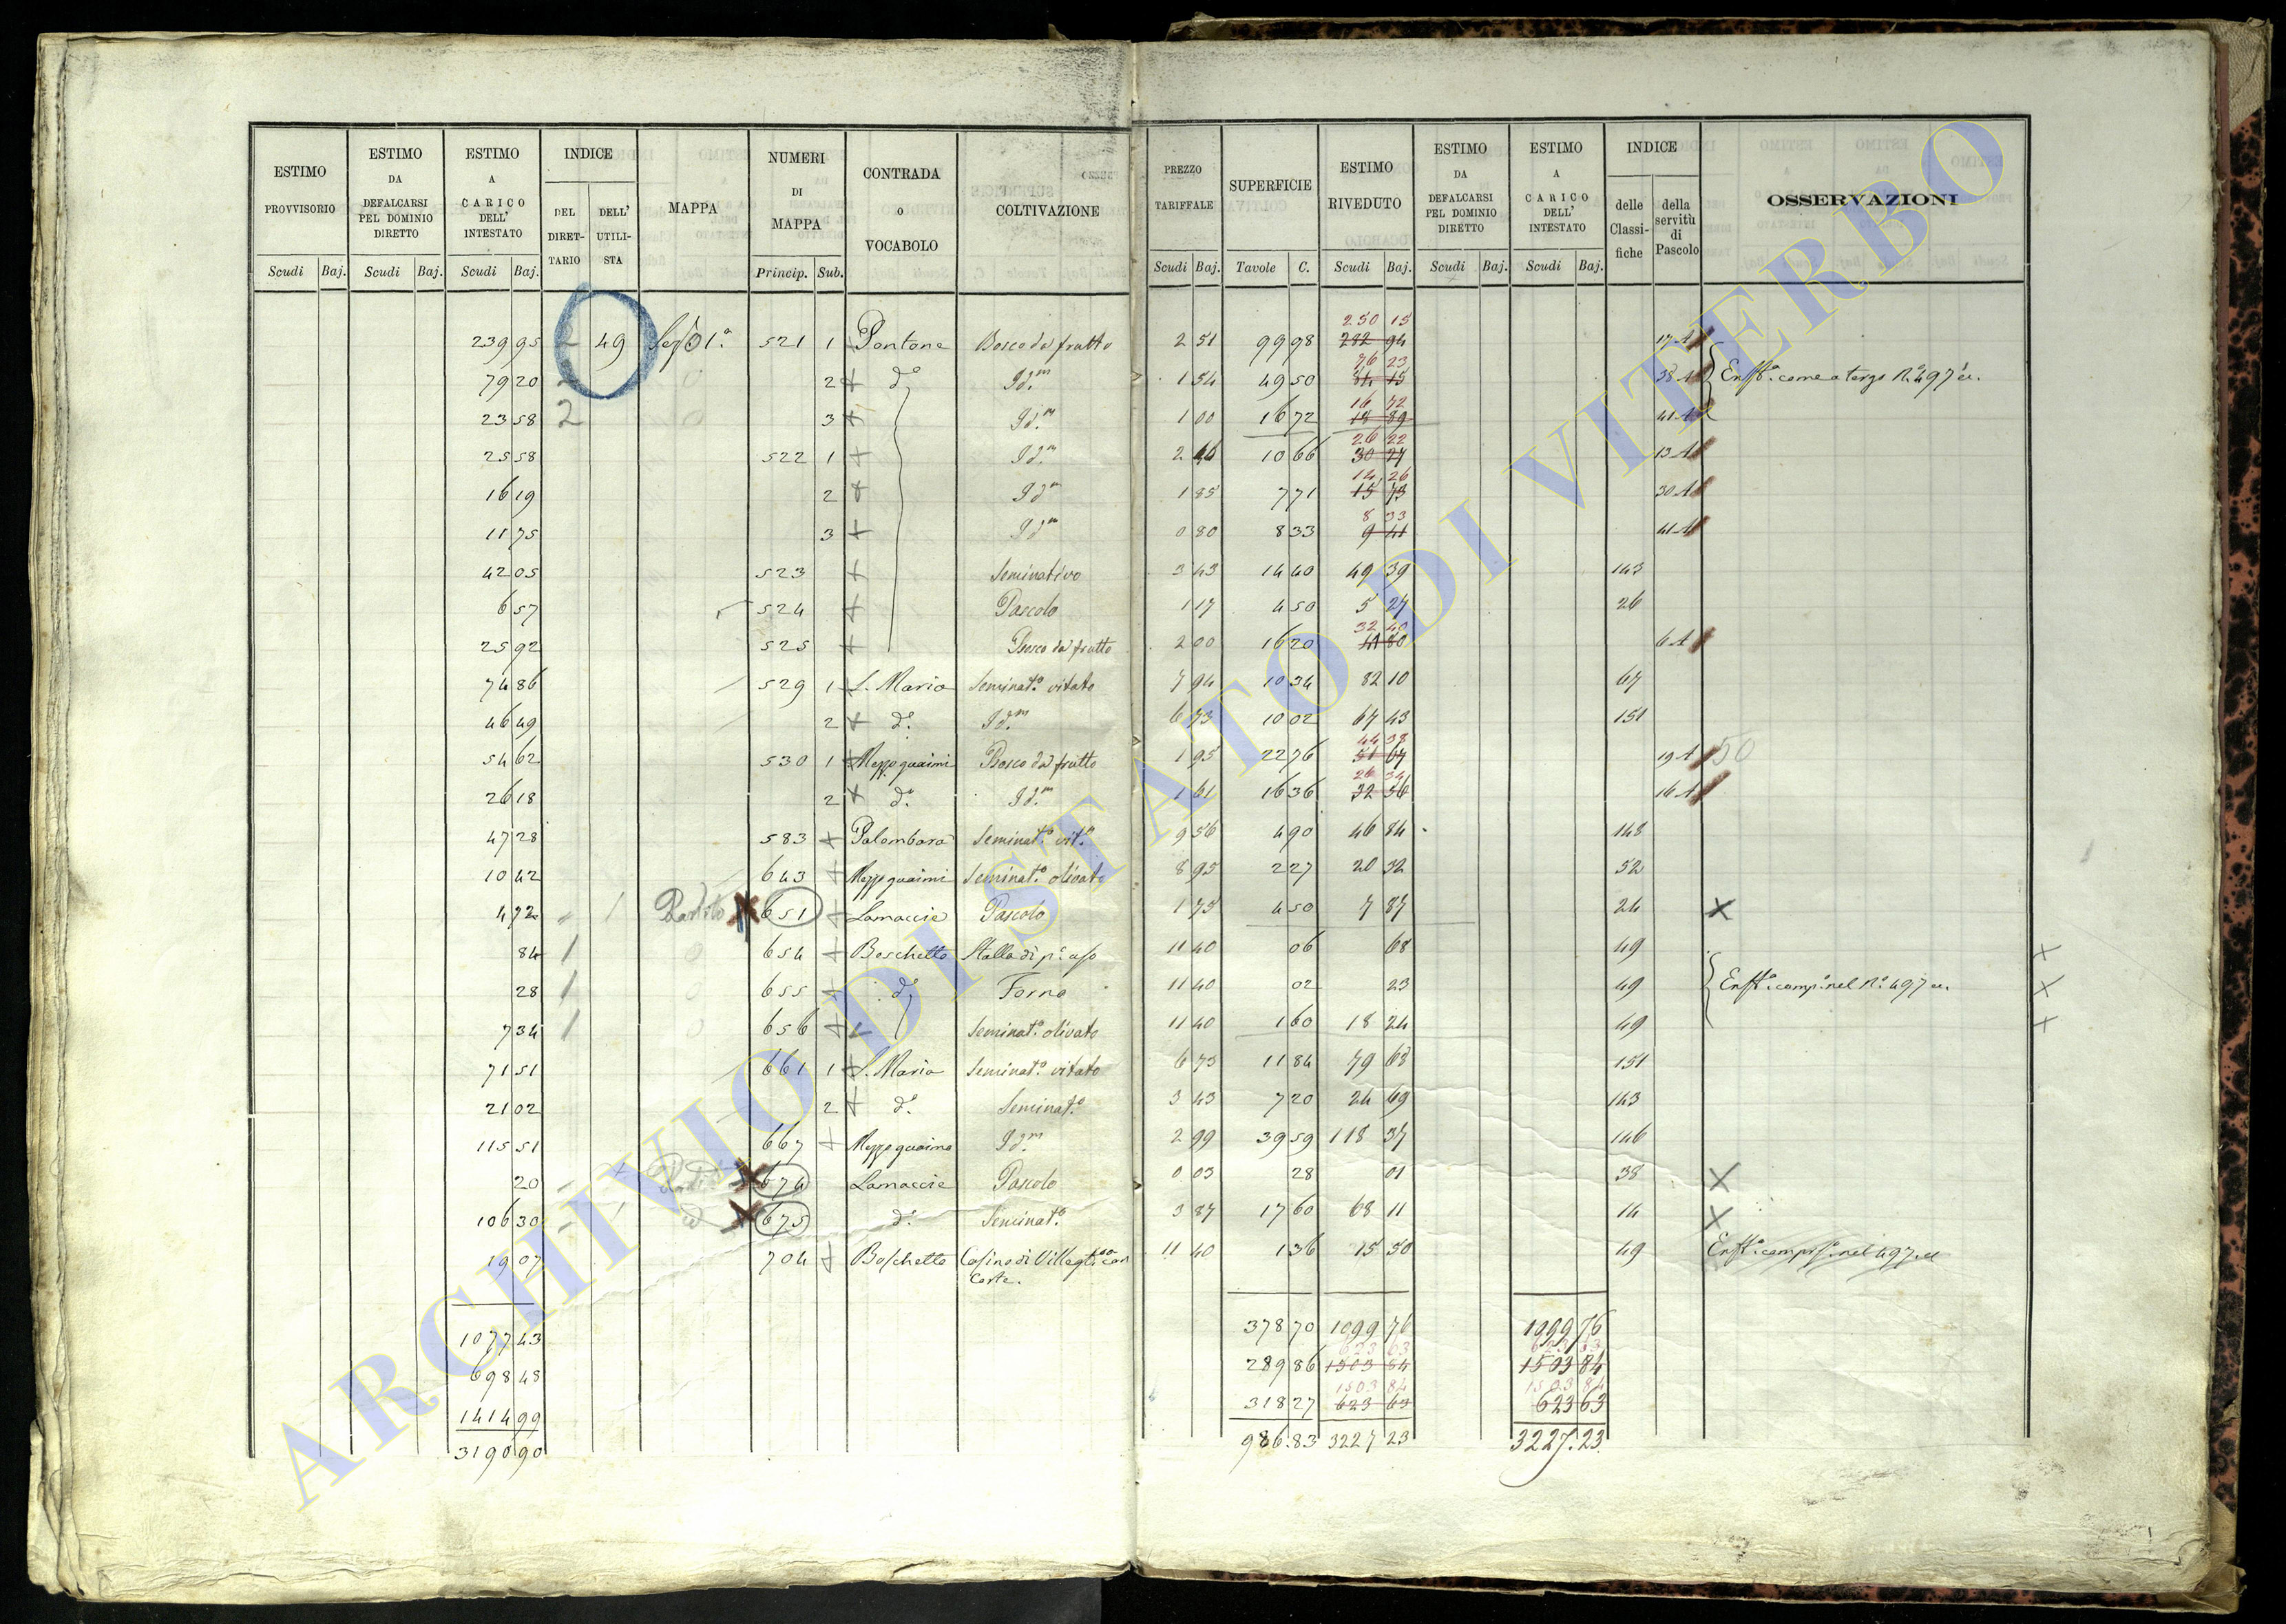 ESTIMO PROVVISORIO
ESTIMO DA DEFALCARSI PEL DOMINIO DIRETTO
ESTIMO A CARICO DELL' INTESTATO
INDICE
DEL DIRET-TARIO
DELL' UTILI-STA
MAPPA
NUMERI DI MAPPA
CONTRADA o VOCABOLO
COLTIVAZIONE
PREZZO TARIFFALE
SUPERFICIE
ESTIMO RIVEDUTO
ESTIMO DA DEFALCARSI PEL DOMINIO DIRETTO
ESTIMO A CARICO DELL' INTESTATO
INDICE
delle Classi-fiche
della servitù di Pascolo
OSSERVAZIONI
Scudi Baj. Scudi Baj. Scudi Baj. Princip. Sub. Scudi Baj. Tavole C. Scudi Baj. Scudi Baj. Scudi Baj.
250 15
239 95 2 49 1ª 521 1 Pontone Bosco da frutto 2 51 99 98 282 94 17 A
76 23
79 20 2 d° Id.m 1 54 49 50 84 15 38 A Enft.a come a tergo N.° 497 ec.
16 72
23 58 2 3 Id.m 1 00 16 72 18 89 41 A
26 22
25 58 522 1 Id.m 2 46 10 66 30 27 13 A
14 26
16 19 2 Id.m 1 85 7 71 15 73 30 A
8 33
11 75 3 Id.m 0 80 8 33 9 41 41 A
42 05 523 Seminativo 3 43 14 40 49 39 143
6 57 524 Pascolo 1 17 4 50 5 27 26
32 40
25 92 525 Bosco da frutto 2 00 16 20 41 80 6 A
74 86 529 1 S. Maria Seminat.o vitato 7 94 10 34 82 10 67
46 49 2 d.° Id.m 6 73 10 02 67 43 151
44 38
54 62 530 1 Mezzoguaimi Bosco da frutto 1 95 22 76 51 67 19 A 50
26 34
26 18 2 d.° Id.m 1 61 16 36 32 56 16 A
47 28 583 Palombara Seminat.o vit.o 9 56 4 90 46 84 148
10 42 643 Mezzoguaimi Seminat.o olivato 8 95 2 27 20 32 52
4 72 1 651 Lamaccie Pascolo 1 75 4 50 7 87 24 X
84 1 654 Boschetto Stalla di p.° uso 11 40 06 68 49 X
28 1 655 d° Forno 11 40 02 23 49 Enft.a comp. nel N.° 497 ec. X
7 34 1 656 Seminat.o olivato 11 40 1 60 18 24 49 X
71 51 661 1 S. Maria Seminat.o vitato 6 73 11 84 79 68 151
21 02 2 d.° Seminat.o 3 43 7 20 24 69 143
115 51 667 Mezzoguaime Id.m 2 99 39 59 118 37 146
20 674 Lamaccie Pascolo 0 03 28 01 38 X
106 30 675 d.° Seminat.o 3 87 17 60 68 11 14 X
19 07 704 Boschetto Casino di Villegg.a con 11 40 1 36 15 50 49
Corte.
1077 43 378 70 1099 76 1099 76
623 63 623 63
698 48 289 86 1503 84 1503 84
1503 84 1503 84
1414 99 318 27 623 63 623 63
3190 90 986.83 3227 23 3227.23
ARCHIVIO DI STATO DI VITERBO